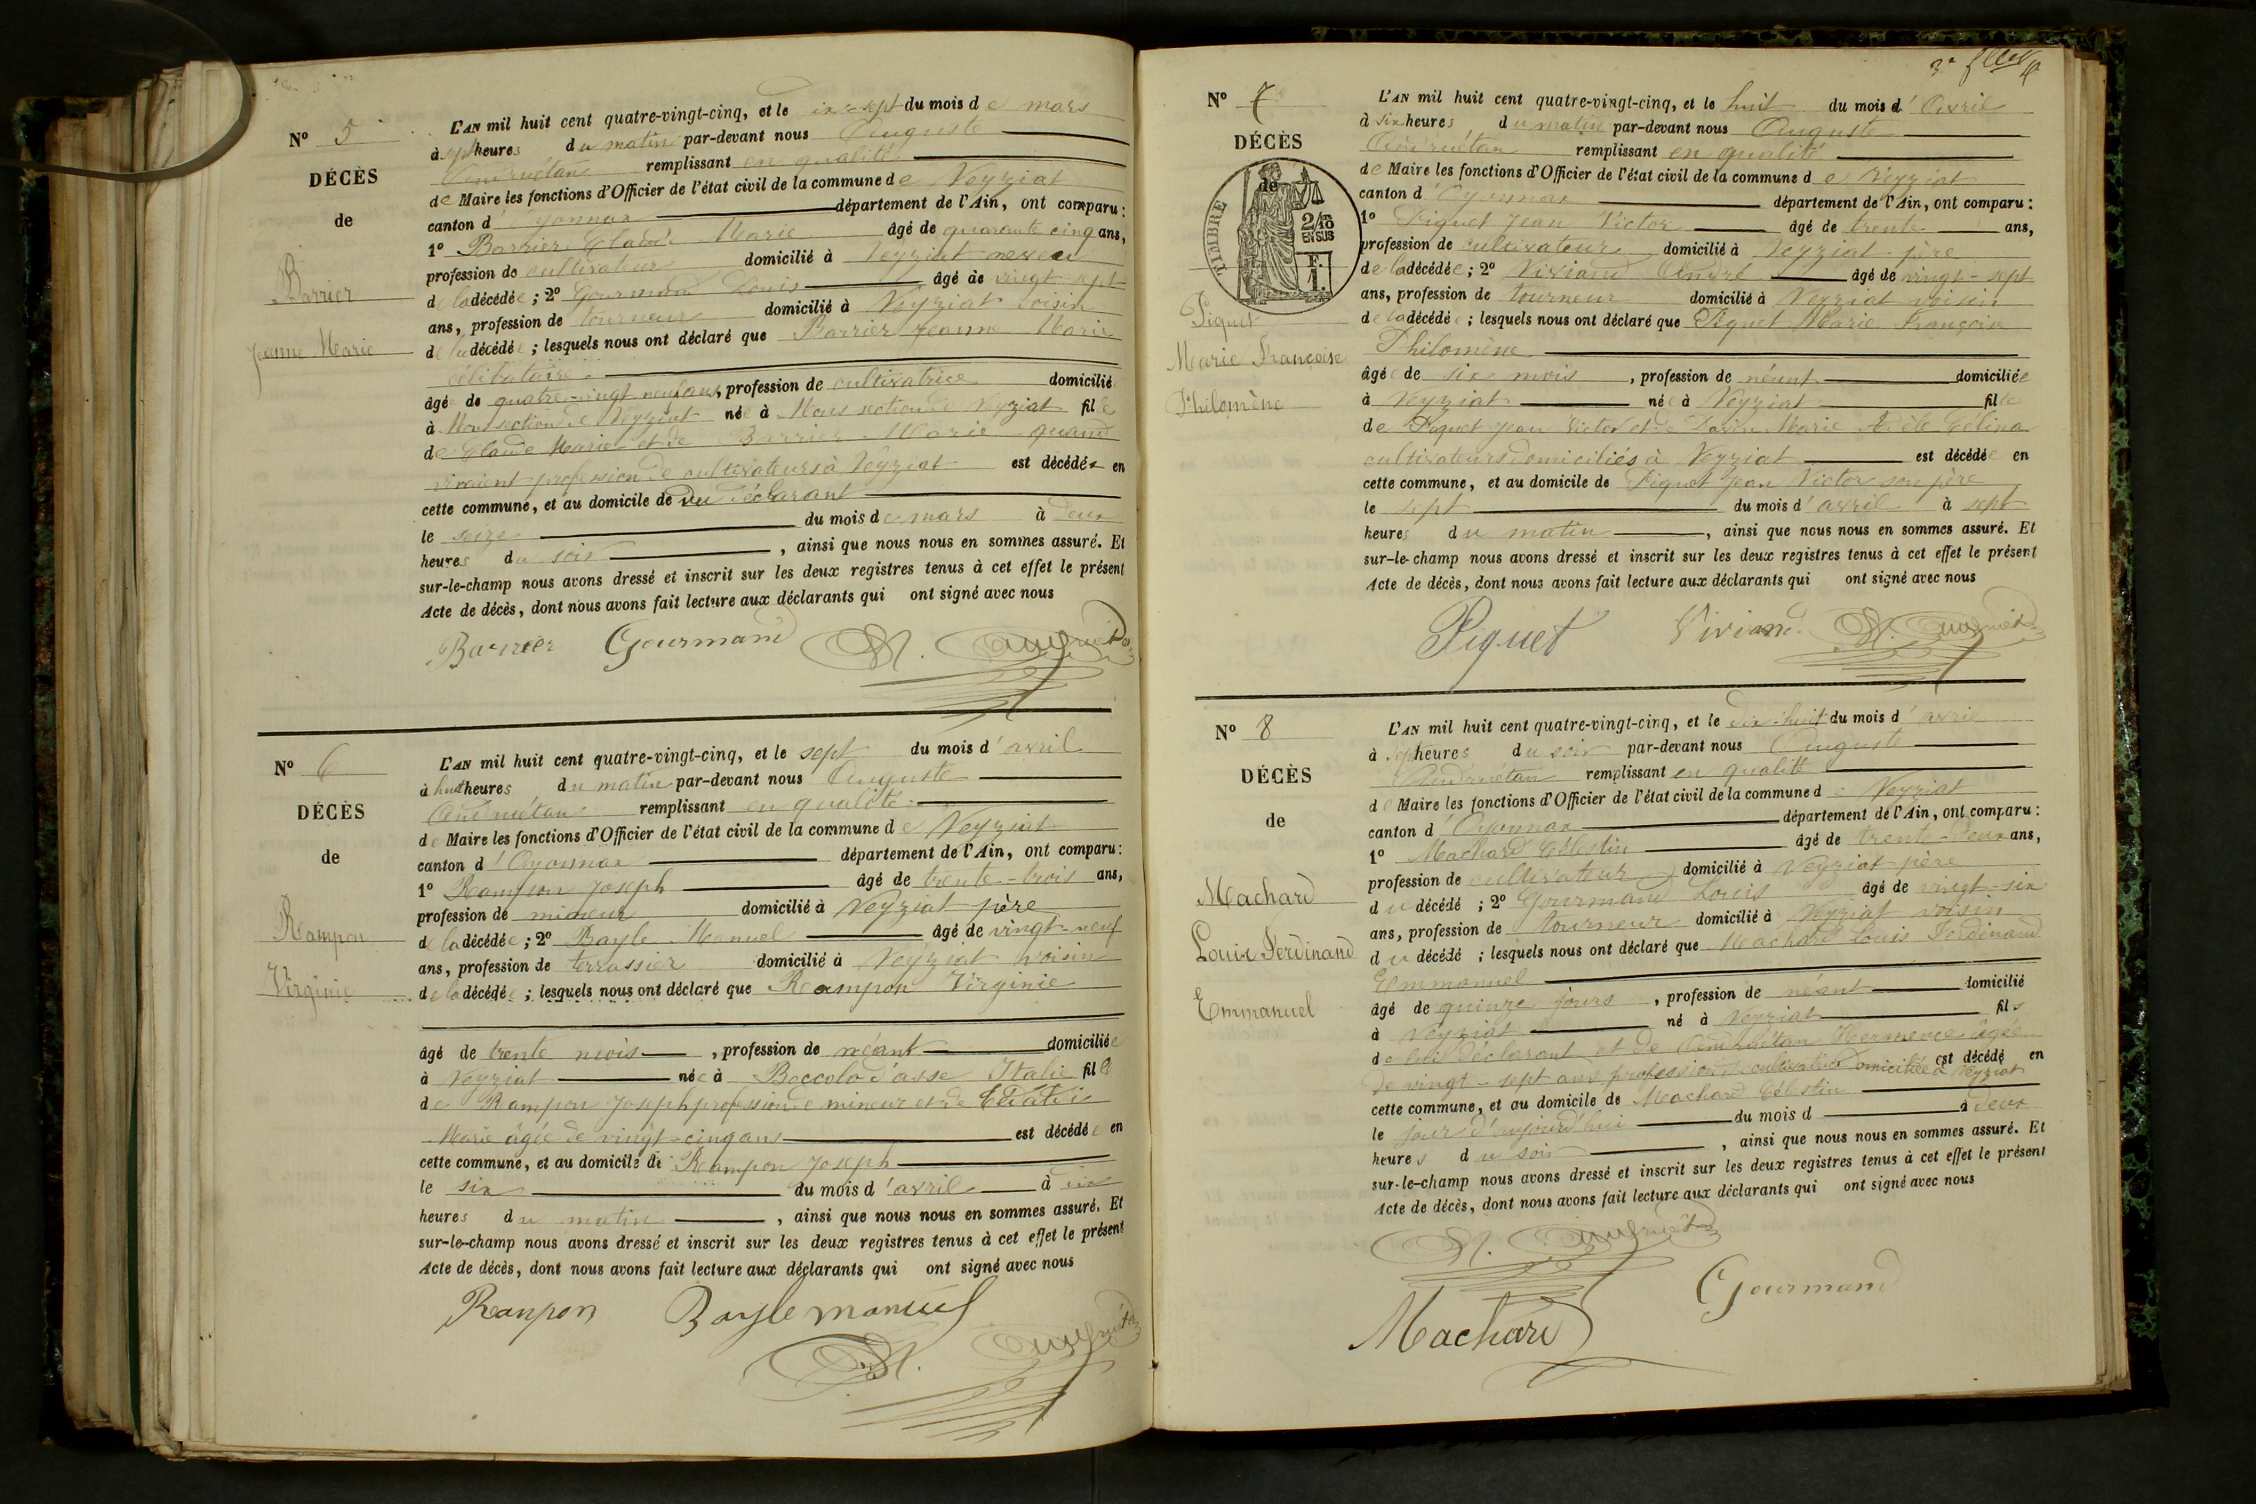 Nº 5
DÉCÈS
de
Barrier
Jeanne Marie
L'AN mil huit cent quatre-vingt-cinq, et le dix-sept du mois de mars
à sept heures du matin par-devant nous Auguste
remplissant en qualité
de Maire les fonctions d'Officier de l'état civil de la commune de Veyziat
canton d'Oyonnax département de l'Ain, ont comparu :
1º Barrier Claude Marie âgé de quarante cinq ans,
profession de cultivateur domicilié à Veyziat neveu
de la décédée ; 2º Gourmand Louis âgé de vingt-sept
ans, profession de tourneur domicilié à Veyziat voisin
de la décédée ; lesquels nous ont déclaré que Barrier Jeanne Marie
célibataire
âgée de quatre-vingt neuf ans, profession de cultivatrice domiciliée
à Mons section de Veyziat née à Mons section de Veyziat fille
de Claude Marie et de Barrier Marie quand
vivaient profession de cultivateurs à Veyziat est décédée en
cette commune, et au domicile de du déclarant
le seize du mois de mars à deux
heures du soir , ainsi que nous nous en sommes assuré. Et
sur-le-champ nous avons dressé et inscrit sur les deux registres tenus à cet effet le présent
Acte de décès, dont nous avons fait lecture aux déclarants qui ont signé avec nous
Barrier Gourmand
Nº 6
DÉCÈS
de
Rampon
Virginie
L'AN mil huit cent quatre-vingt-cinq, et le sept du mois d'avril
à huit heures du matin par-devant nous Auguste
remplissant en qualité
de Maire les fonctions d'Officier de l'état civil de la commune de Veyziat
canton d'Oyonnax département de l'Ain, ont comparu :
1º Rampon Joseph âgé de trente-trois ans,
profession de mineur domicilié à Veyziat père
de la décédée ; 2º Bayle Manuel âgé de vingt-neuf
ans, profession de terrassier domicilié à Veyziat voisin
de la décédée ; lesquels nous ont déclaré que Rampon Virginie
âgé de trente mois , profession de néant domiciliée
à Veyziat née à Boccolo d'asse Italie fille
de Rampon Joseph profession de mineur et de
Marie âgée de vingt-cinq ans est décédée en
cette commune, et au domicile de Rampon Joseph
le six du mois d'avril à dix
heures du matin , ainsi que nous nous en sommes assuré. Et
sur-le-champ nous avons dressé et inscrit sur les deux registres tenus à cet effet le présent
Acte de décès, dont nous avons fait lecture aux déclarants qui ont signé avec nous
Rampon Bayle manuel
Nº 7
DÉCÈS
de
TIMBRE
2/10
EN SUS
F.
1.
Piquet
Marie Françoise
Philomène
L'AN mil huit cent quatre-vingt-cinq, et le huit du mois d'Avril
à six heures du matin par-devant nous Auguste
remplissant en qualité
de Maire les fonctions d'Officier de l'état civil de la commune de Veyziat
canton d'Oyonnax département de l'Ain, ont comparu :
1º Piquet Jean Victor âgé de trente ans,
profession de cultivateur domicilié à Veyziat père
de la décédée ; 2º Viviand André âgé de vingt-sept
ans, profession de tourneur domicilié à Veyziat voisin
de la décédée ; lesquels nous ont déclaré que Piquet Marie Françoise
Philomène
âgée de six mois , profession de néant domiciliée
à Veyziat née à Veyziat fille
de Piquet Jean Victor et de Marie Adèle Célina
cultivateurs domiciliés à Veyziat est décédée en
cette commune, et au domicile de Piquet Jean Victor son père
le sept du mois d'avril à sept
heures du matin , ainsi que nous nous en sommes assuré. Et
sur-le-champ nous avons dressé et inscrit sur les deux registres tenus à cet effet le présent
Acte de décès, dont nous avons fait lecture aux déclarants qui ont signé avec nous
Piquet Viviand
Nº 8
DÉCÈS
de
Machard
Louis Ferdinand
Emmanuel
L'AN mil huit cent quatre-vingt-cinq, et le dix-huit du mois d'avril
à sept heures du soir par-devant nous Auguste
remplissant en qualité
de Maire les fonctions d'Officier de l'état civil de la commune de Veyziat
canton d'Oyonnax département de l'Ain, ont comparu :
1º Machard Célestin âgé de trente-deux ans,
profession de cultivateur domicilié à Veyziat père
du décédé ; 2º Gourmand Louis âgé de vingt-six
ans, profession de tourneur domicilié à Veyziat voisin
du décédé ; lesquels nous ont déclaré que Machard Louis Ferdinand
Emmanuel
âgé de quinze jours , profession de néant domicilié
à Veyziat né à Veyziat fils
de déclarant et de Hermence âgée
de vingt-sept ans profession de cultivatrice domiciliée à Veyziat est décédé en
cette commune, et au domicile de Machard Célestin
le jour d'aujourd'hui du mois d à deux
heures du soir , ainsi que nous nous en sommes assuré. Et
sur-le-champ nous avons dressé et inscrit sur les deux registres tenus à cet effet le présent
Acte de décès, dont nous avons fait lecture aux déclarants qui ont signé avec nous
Gourmand
Machard